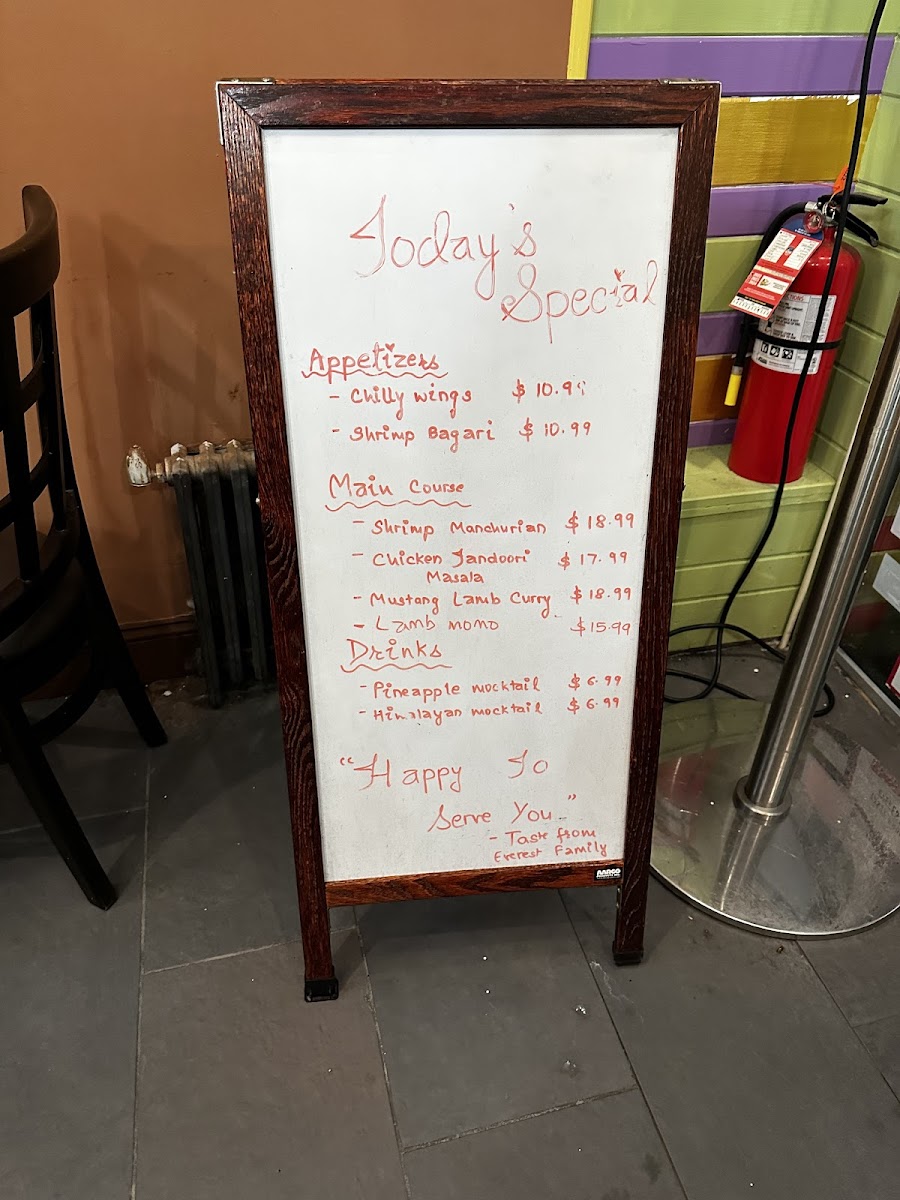 Today's
Special
Appetizers
- Chilly wings $ 10.99
- Shrimp Bagari $ 10.99
Main Course
- Shrimp Manchurian $ 18.99
- Chicken Tandoori $ 17.99
Masala
- Mustang Lamb Curry $ 18.99
- Lamb momo $ 15.99
Drinks
- Pineapple mocktail $ 6.99
- Himalayan mocktail $ 6.99
"Happy To
Serve You.."
- Taste from
Everest Family
AARCO